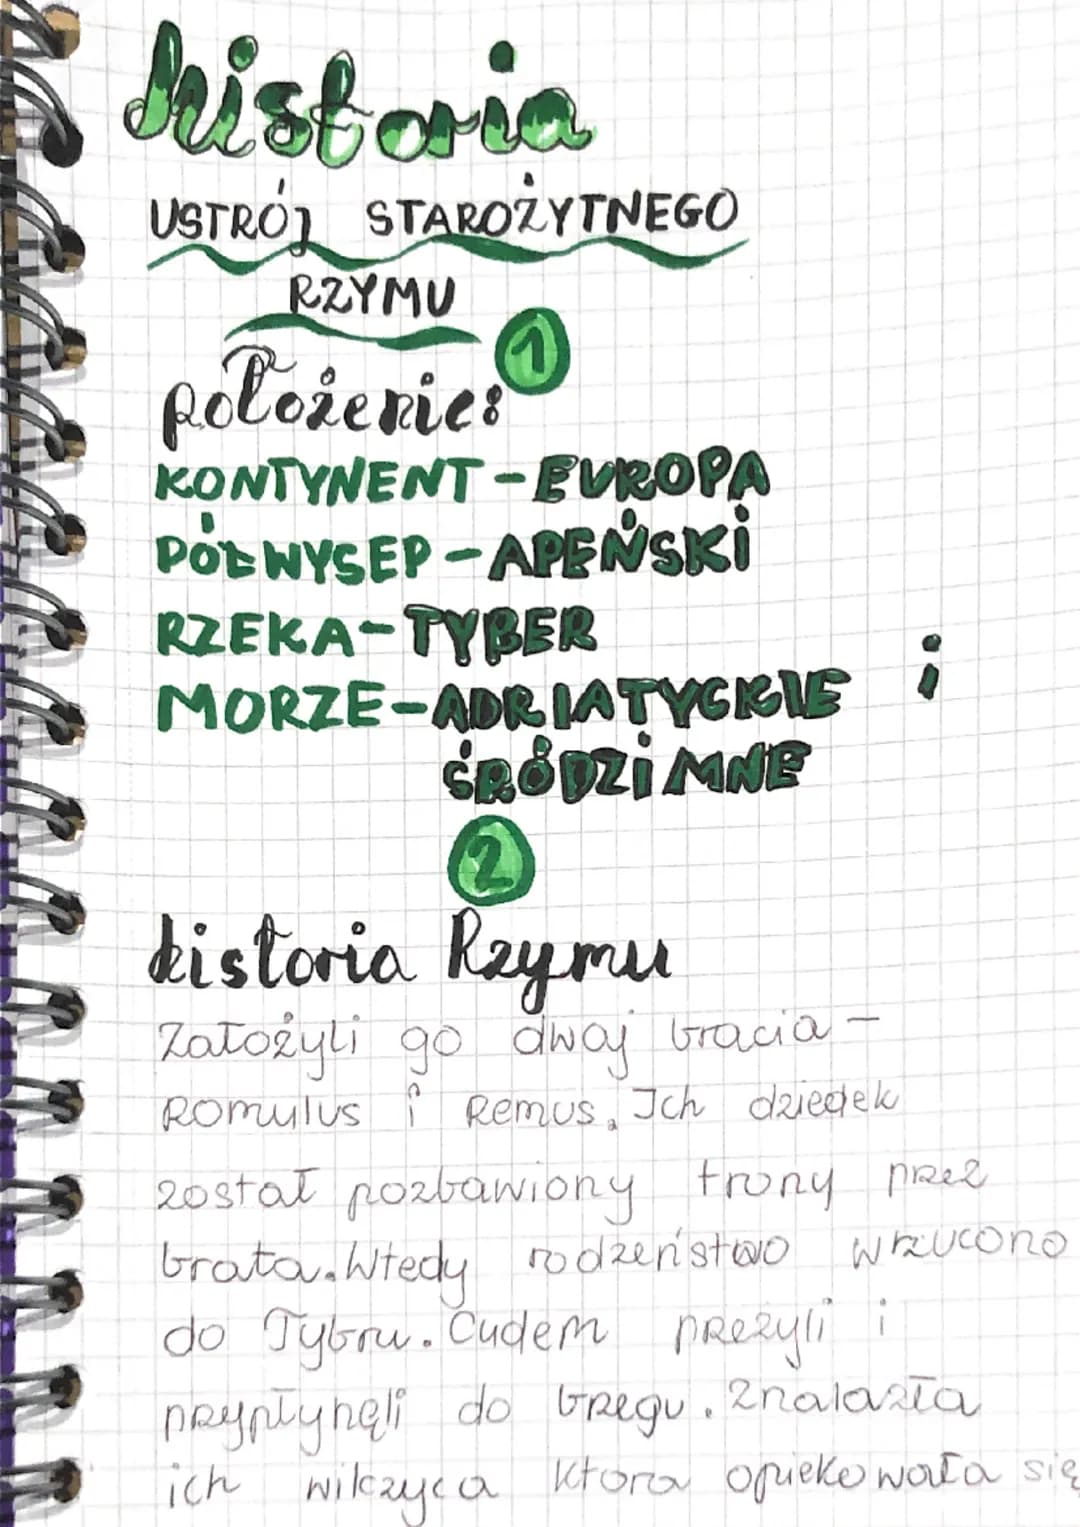 historia
USTRÓJ STAROŻYTNEGO
RZYMU
1
położenie:
KONTYNENT - EUROPA
PÓŁWYSEP - APEŃSKI
RZEKA - TYBER
MORZE - ADRIATYCKIE i
ŚRÓDZIMNE
2
historia Rzymu
Założyli go dwaj bracia -
Romulus i Remus. Ich dziedek
został pozbawiony trony przez
brata. Wtedy rodzeństwo wrzucono
do Tybru. Cudem przeżyli i
przypłynęli do brzegu. Znalazła
ich wilczyca która opiekowała się